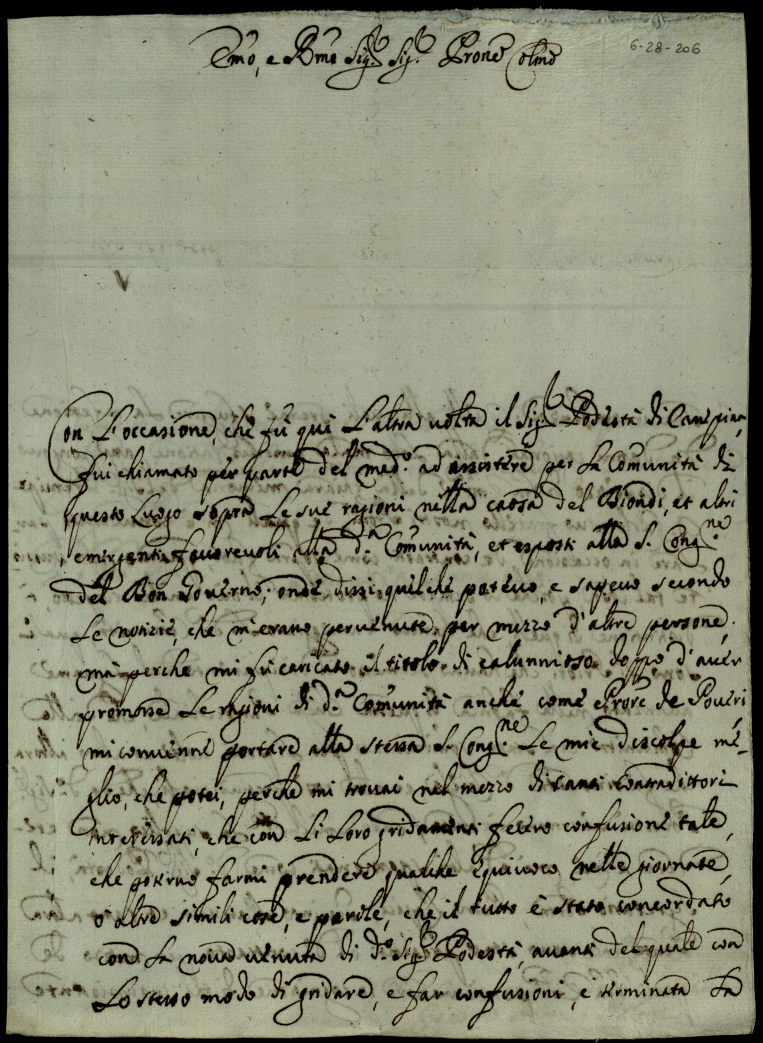 Emo, e Rmo Sig.r Sig.r Prone Colmo
6-28-206
Con L'occasione, che fù quì L'altra uolta il Sig.r Podestà di Canepina,
fui chiamato per parte del med.o ad assistere per La Comunità di
questo Luogo sopra Le sue ragioni nella causa del Biondi, et altri
emergenti fauoreuoli alla d.a Comunità, et esposti alla S. Cong.ne
del Bon Gouerno, onde dissi quel che poteuo, e sapeuo secondo
Le notizie, che m'erano peruenute per mezzo d'altre persone.
mà perche mi fù caricato il titolo di calunnioso doppo d'auer
promosse Le ragioni di d.a Comunità anche come Prore de Poueri
mi conuenne portare alla stessa S. Cong.ne Le mie discolpe me-
glio, che potei, perche mi trouai nel mezzo di tanti Contradittori
interessati, che con Li Loro gridamenti fecero confusione tale,
che poterno farmi prendere qualche equiuoco nelle giornate,
ò altre simili cose, e parole, che il tutto è stato concordato
con La noua uenuta di d.o Sig.r Podestà, auanti del quale con
Lo stesso modo di gridare, e far confusioni, è terminata La